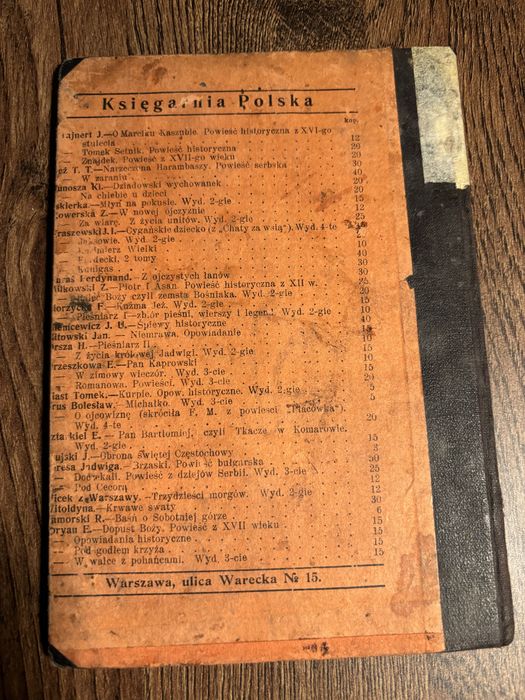 Księgarnia Polska
kop.
ajnert J.—O Marciku Kaszubie. Powieść historyczna z XVI-go
stulecia 12
— Tomek Setnik. Powieść historyczna 20
— Znajdek. Powieść z XVII-go wieku 20
eż T. T.—Narzeczona Harambaszy. Powieść serbska 30
— W zaraniu 40
unosza Kl.—Dziadowski wychowanek 20
— Na chlebie u dzieci 20
skierka.—Młyn na pokusie. Wyd. 2-gie 15
owerska Z.—W nowej ojczyźnie 12
— Za wiarę. Z życia unitów. Wyd. 2-gie 25
raszewski J. I.—Cygańskie dziecko (z „Chaty za wsią"). Wyd. 4-te
— Jaksowie. Wyd. 2-gie
— Kaźmierz Wielki 10
— 2 tomy 40
— Kunigas 30
uraś Ferdynand.—Z ojczystych łanów 30
iłkowski Z.—Piotr i Asan. Powieść historyczna z XII w.
Boży czyli zemsta Bośniaka. Wyd. 2-gie 20
orzycka F.—Kuźma Jeż. Wyd. 2-gie 15
— Pieśniarz I—zbiór pieśni, wierszy i legend. Wyd. 2-gie 10
iemcewicz J. U.—Śpiewy historyczne 40
iłowski Jan.—Niemrawa. Opowiadanie
rsza H.—Pieśniarz II 10
— Z życia królowej Jadwigi. Wyd. 2-gie 15
rzeszkowa E.—Pan Kaprowski 10
— W zimowy wieczór. Wyd. 3-cie 15
— Romanowa. Powieści. Wyd. 3-cie 20
iast Tomek.—Kurpie. Opow. historyczne. Wyd. 2-gie 5
rus Bolesław.—Michałko. Wyd. 3-cie 5
— O ojcowiznę (skróciła F. M. z powieści „Placówka").
Wyd. 4-te 20
kiel E.—Pan Bartłomiej, czyli Tkacze w Komarowie.
Wyd. 2-gie 15
ujski J.—Obrona świętej Częstochowy 3
resa Jadwiga.—Brzaski. Powieść bułgarska 30
— Doczekali. Powieść z dziejów Serbii. Wyd. 3-cie 25
— Pod Cecorą 12
icek z Warszawy.—Trzydzieści morgów. Wyd. 2-gie 12
itoldyna.—Krwawe swaty 30
amorski R.—Baśń o Sobotniej górze 6
oryan E.—Dopust Boży. Powieść z XVII wieku 15
— Opowiadania historyczne 15
— Pod godłem krzyża 15
— W walce z pohańcami. Wyd. 3-cie 15
Warszawa, ulica Warecka № 15.